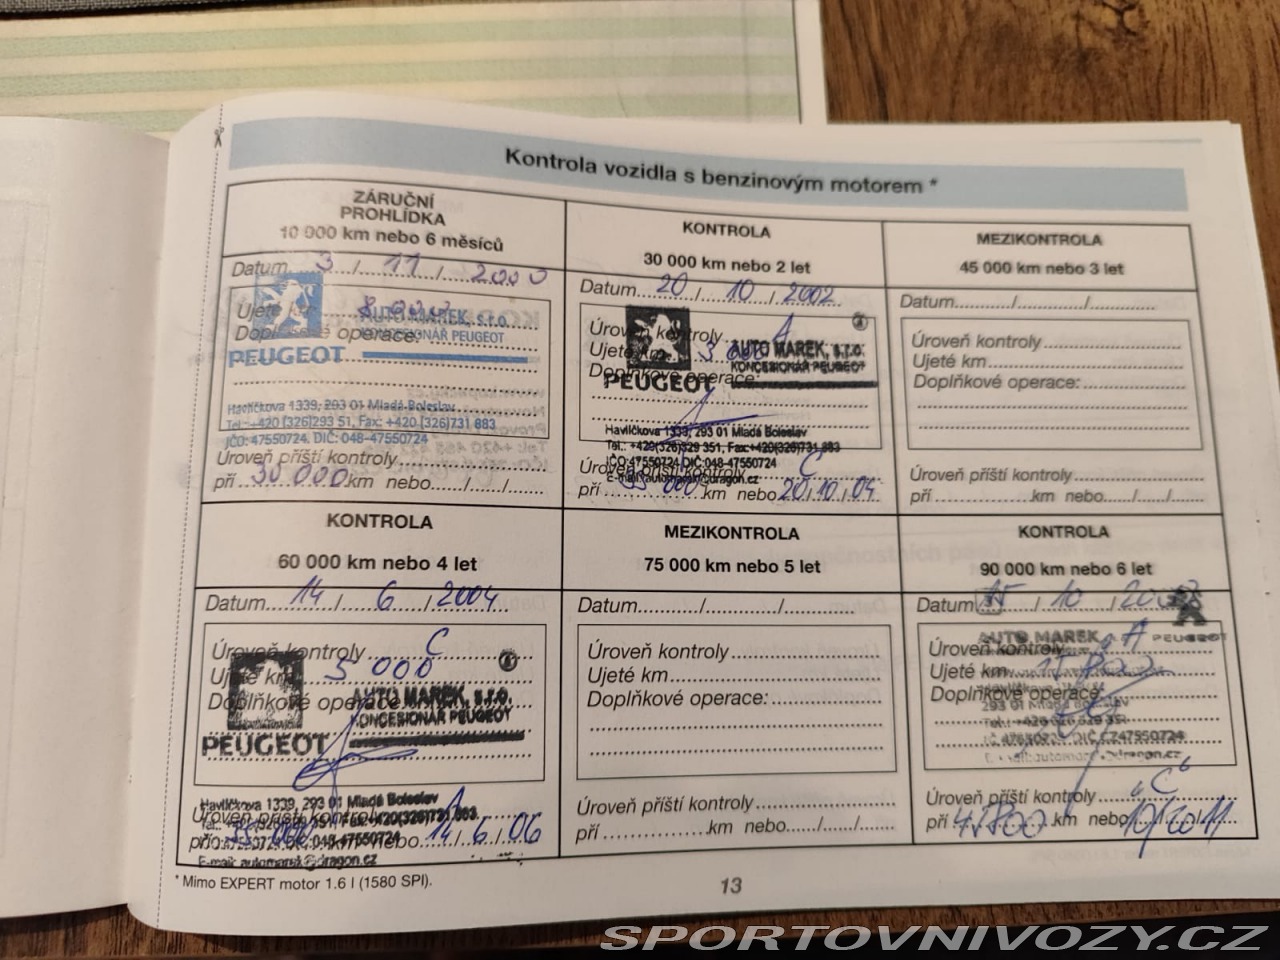 Kontrola vozidla s benzinovým motorem *
ZÁRUČNÍ
PROHLÍDKA
10 000 km nebo 6 měsíců
Datum 3 / 11 / 2000
Ujeté km 8 000
Doplňkové operace:
AUTO MAREK, s.r.o.
KONCESIONÁŘ PEUGEOT
PEUGEOT
Havlíčkova 1339, 293 01 Mladá Boleslav
Tel.: +420 (326)293 51, Fax: +420 (326)731 883
IČO: 47550724, DIČ: 048-47550724
Úroveň příští kontroly
při 30 000 km nebo....../...../.......
KONTROLA
30 000 km nebo 2 let
Datum 20 / 10 / 2002
Úroveň kontroly A
Ujeté km 3 000
Doplňkové operace:
AUTO MAREK, s.r.o.
KONCESIONÁŘ PEUGEOT
PEUGEOT
Havlíčkova 1339, 293 01 Mladá Boleslav
Tel.: +420(326)329 351, Fax:+420(326)731 883
IČO:47550724 DIČ:048-47550724
E-mail: automarek@dragon.cz
Úroveň příští kontroly C
při km nebo 20, 10, 04
MEZIKONTROLA
45 000 km nebo 3 let
Datum............/............/............
Úroveň kontroly
Ujeté km
Doplňkové operace:
Úroveň příští kontroly
při ................km nebo....../...../.......
KONTROLA
60 000 km nebo 4 let
Datum 14 / 6 / 2004
Úroveň kontroly C
Ujeté km 5 000
Doplňkové operace:
AUTO MAREK, s.r.o.
KONCESIONÁŘ PEUGEOT
PEUGEOT
Havlíčkova 1339, 293 01 Mladá Boleslav
Úroveň příští kontroly A
při km nebo 14 / 6 / 06
E-mail: automarek@dragon.cz
MEZIKONTROLA
75 000 km nebo 5 let
Datum............/............/............
Úroveň kontroly
Ujeté km
Doplňkové operace:
Úroveň příští kontroly
při ................km nebo....../...../.......
KONTROLA
90 000 km nebo 6 let
Datum 15 / 10 /
PEUGEOT
AUTO MAREK
Úroveň kontroly A
Ujeté km
Doplňkové operace:
293 01 Mladá Boleslav
47550724, DIČ CZ47550724
Úroveň příští kontroly "C"
při km nebo 10/2011
* Mimo EXPERT motor 1.6 l (1580 SPI).
13
SPORTOVNIVOZY.CZ